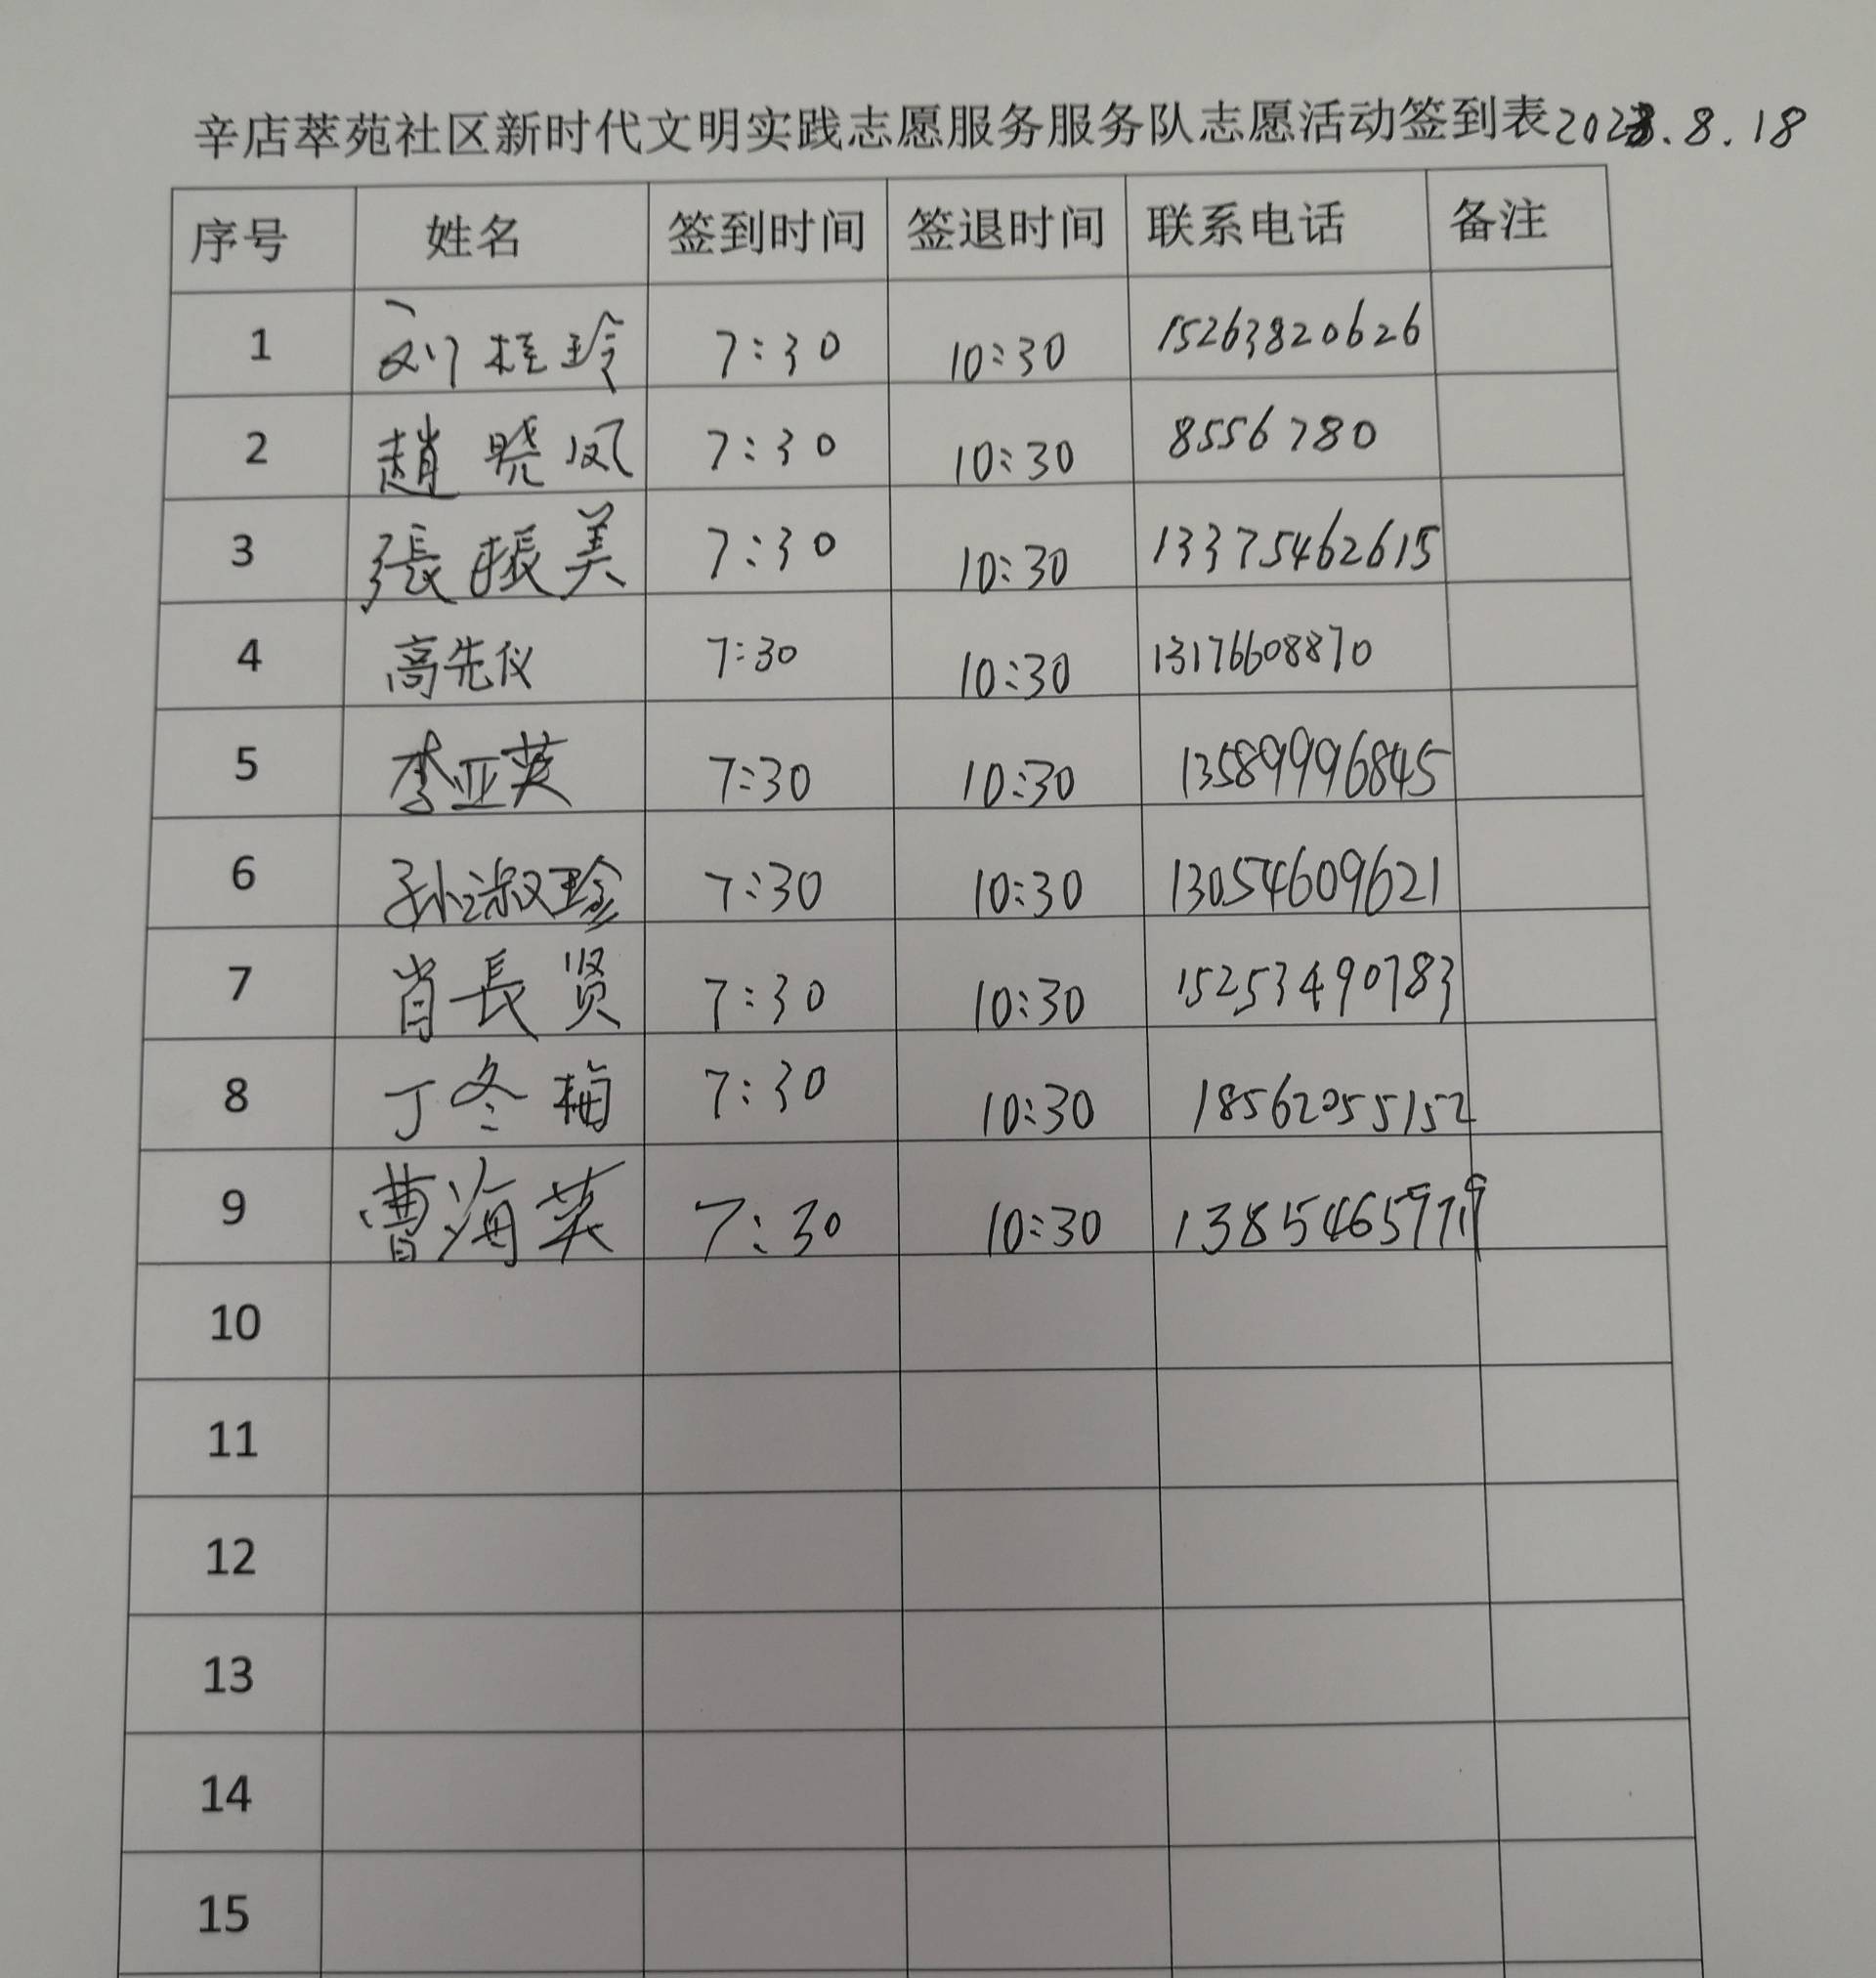 辛店萃苑社区新时代文明实践志愿服务服务队志愿活动签到表2023.8.18
序号 姓名 签到时间 签退时间 联系电话 备注
1 刘桂玲 7:30 10:30 15263820626
2 趙晓凤 7:30 10:30 8556780
3 張振美 7:30 10:30 13375462615
4 高先仪 7:30 10:30 13176608870
5 李亚英 7:30 10:30 13589996845
6 孙淑珍 7:30 10:30 13054609621
7 肖長贤 7:30 10:30 15253490783
8 丁冬梅 7:30 10:30 18562055152
9 曹海英 7:30 10:30
10
11
12
13
14
15